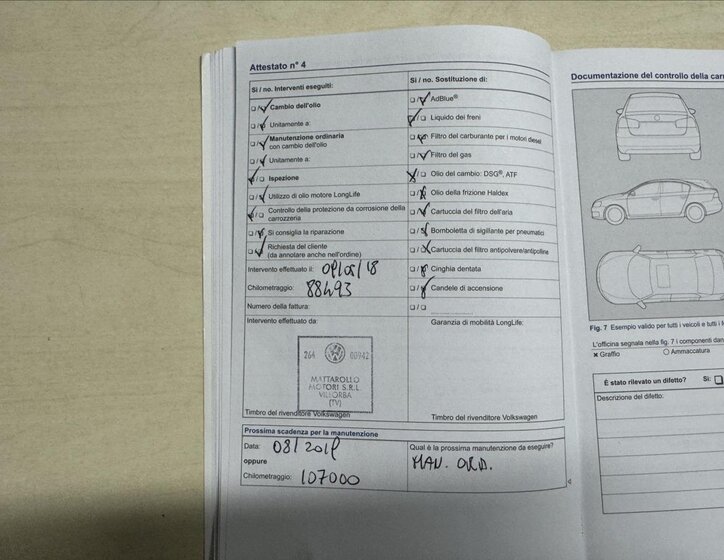 Attestato n° 4
Si / no. Interventi eseguiti:
Cambio dell'olio
Unitamente a:
Manutenzione ordinaria
con cambio dell'olio
Unitamente a:
Ispezione
Utilizzo di olio motore LongLife
Controllo della protezione da corrosione della
carrozzeria
Si consiglia la riparazione
Richiesta del cliente
(da annotare anche nell'ordine)
Intervento effettuato il:
Chilometraggio: 88493
Numero della fattura:
Intervento effettuato da:
264 00942
MATTAROLLO
MOTORI S.R.L.
VILLORBA
(TV)
Timbro del rivenditore Volkswagen
Si / no. Sostituzione di:
AdBlue®
Liquido dei freni
Filtro del carburante per i motori diesel
Filtro del gas
Olio del cambio: DSG®, ATF
Olio della frizione Haldex
Cartuccia del filtro dell'aria
Bomboletta di sigillante per pneumatici
Cartuccia del filtro antipolvere/antipolline
Cinghia dentata
Candele di accensione
Garanzia di mobilità LongLife:
Timbro del rivenditore Volkswagen
Prossima scadenza per la manutenzione
Data: 08/2019
oppure
Chilometraggio: 107000
Qual è la prossima manutenzione da eseguire?
MAN. ORD.
Documentazione del controllo della carr
Fig. 7 Esempio valido per tutti i veicoli e tutti i
L'officina segnala nella fig. 7 i componenti dan
Graffio
Ammaccatura
È stato rilevato un difetto? Sì:
Descrizione del difetto: